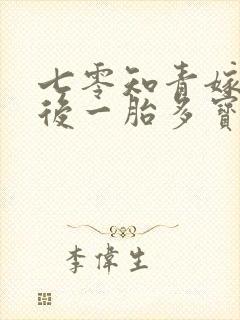 七零知青嫁
後一胎多寶
李偉生